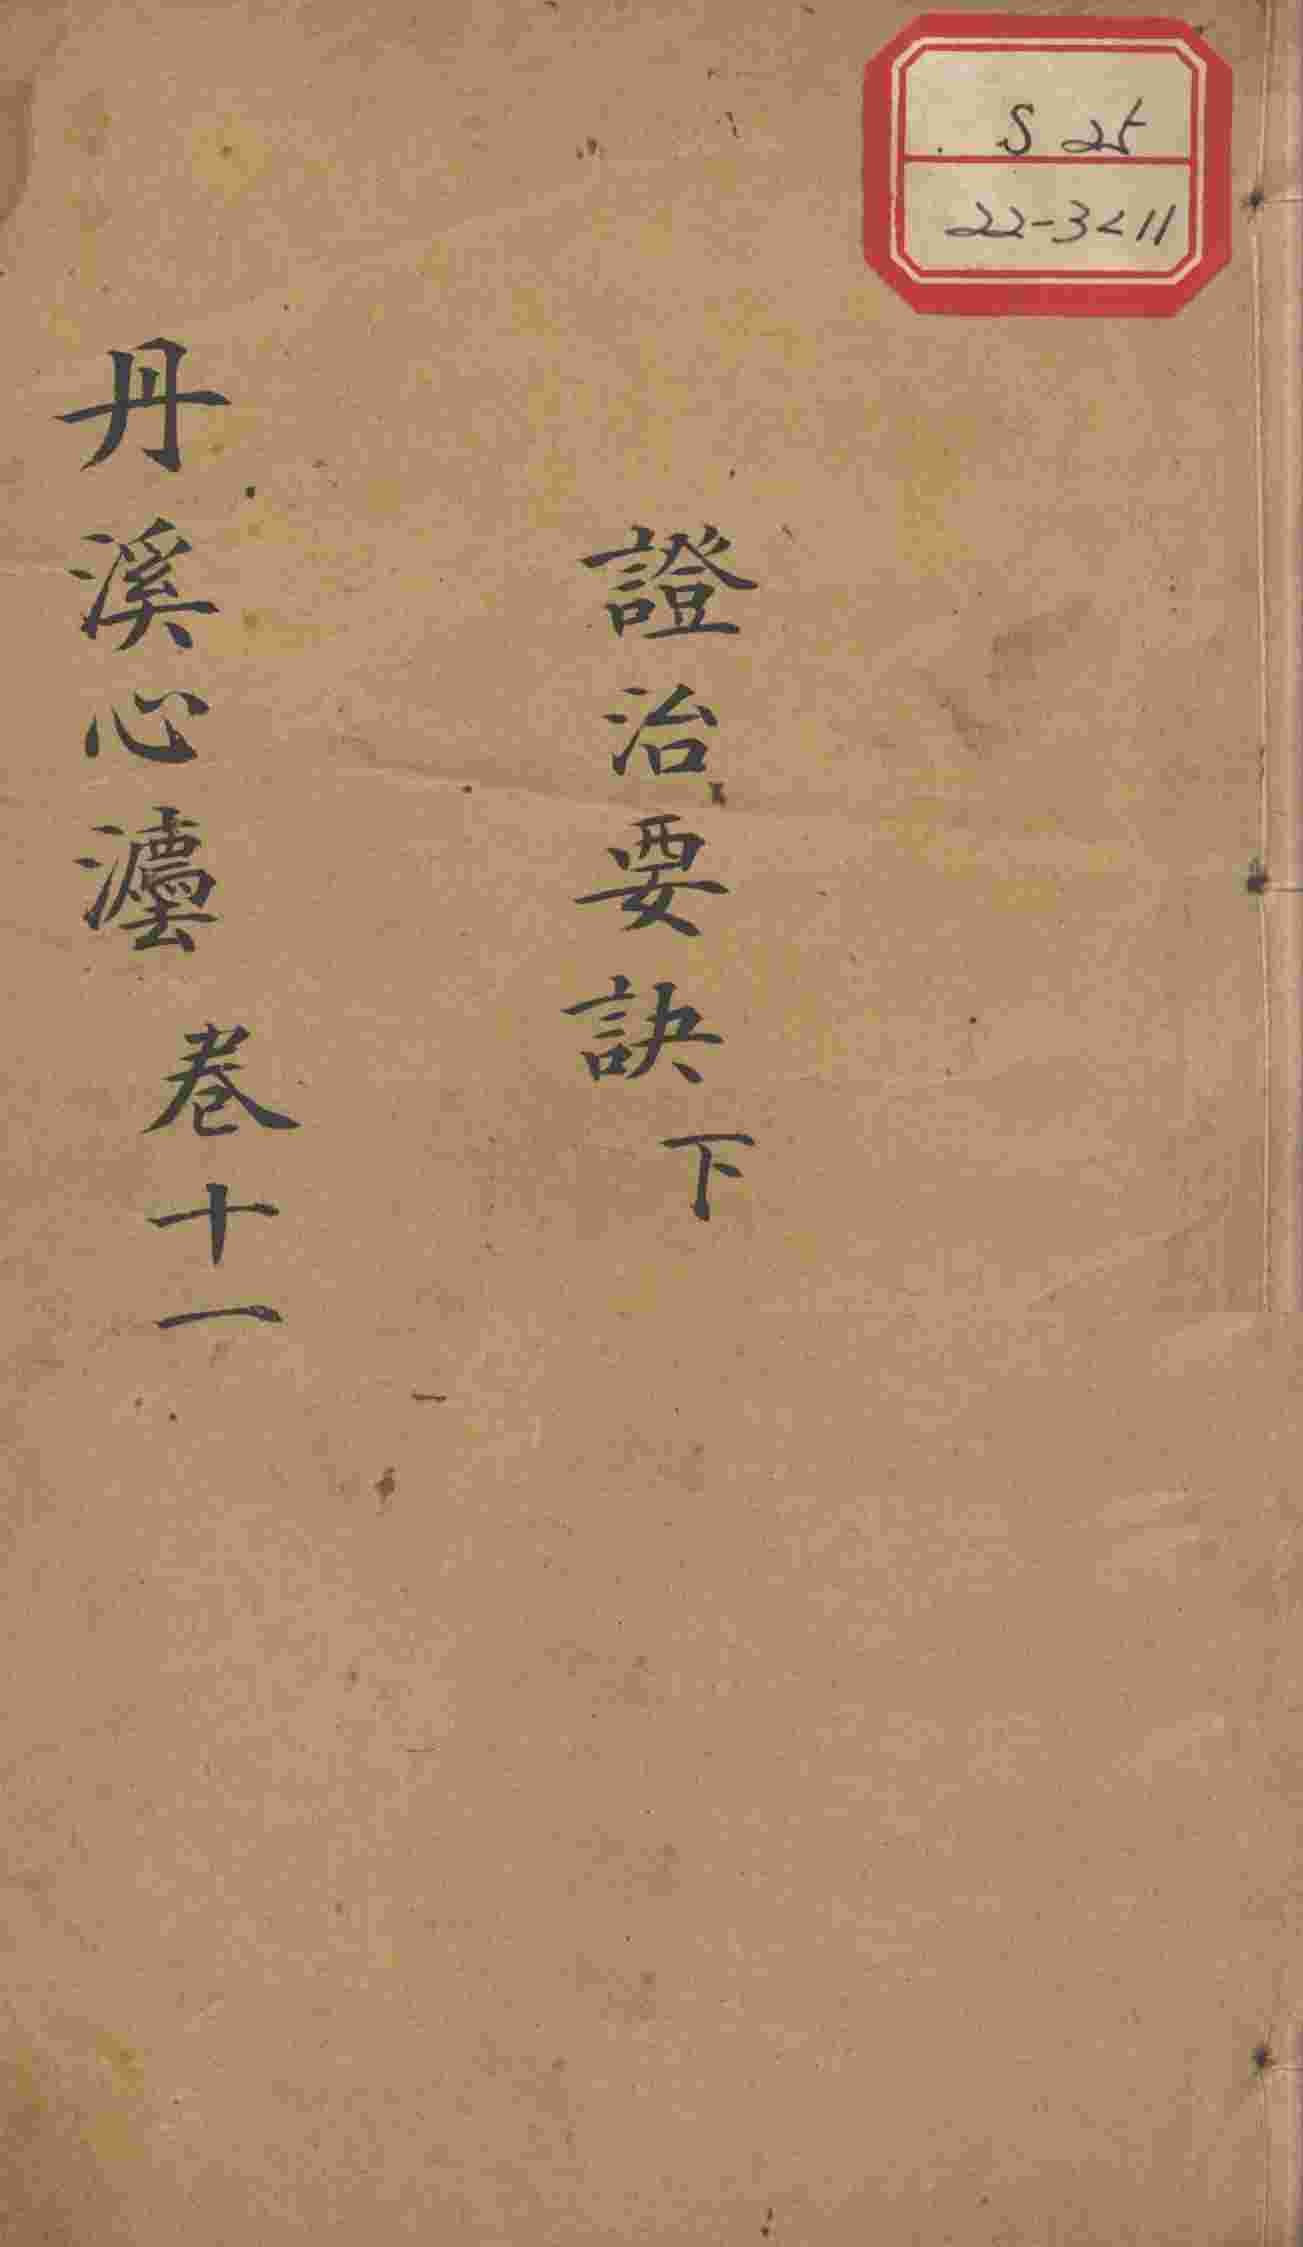 S 25
22-3<11
證治要訣下
丹溪心灋 卷十一